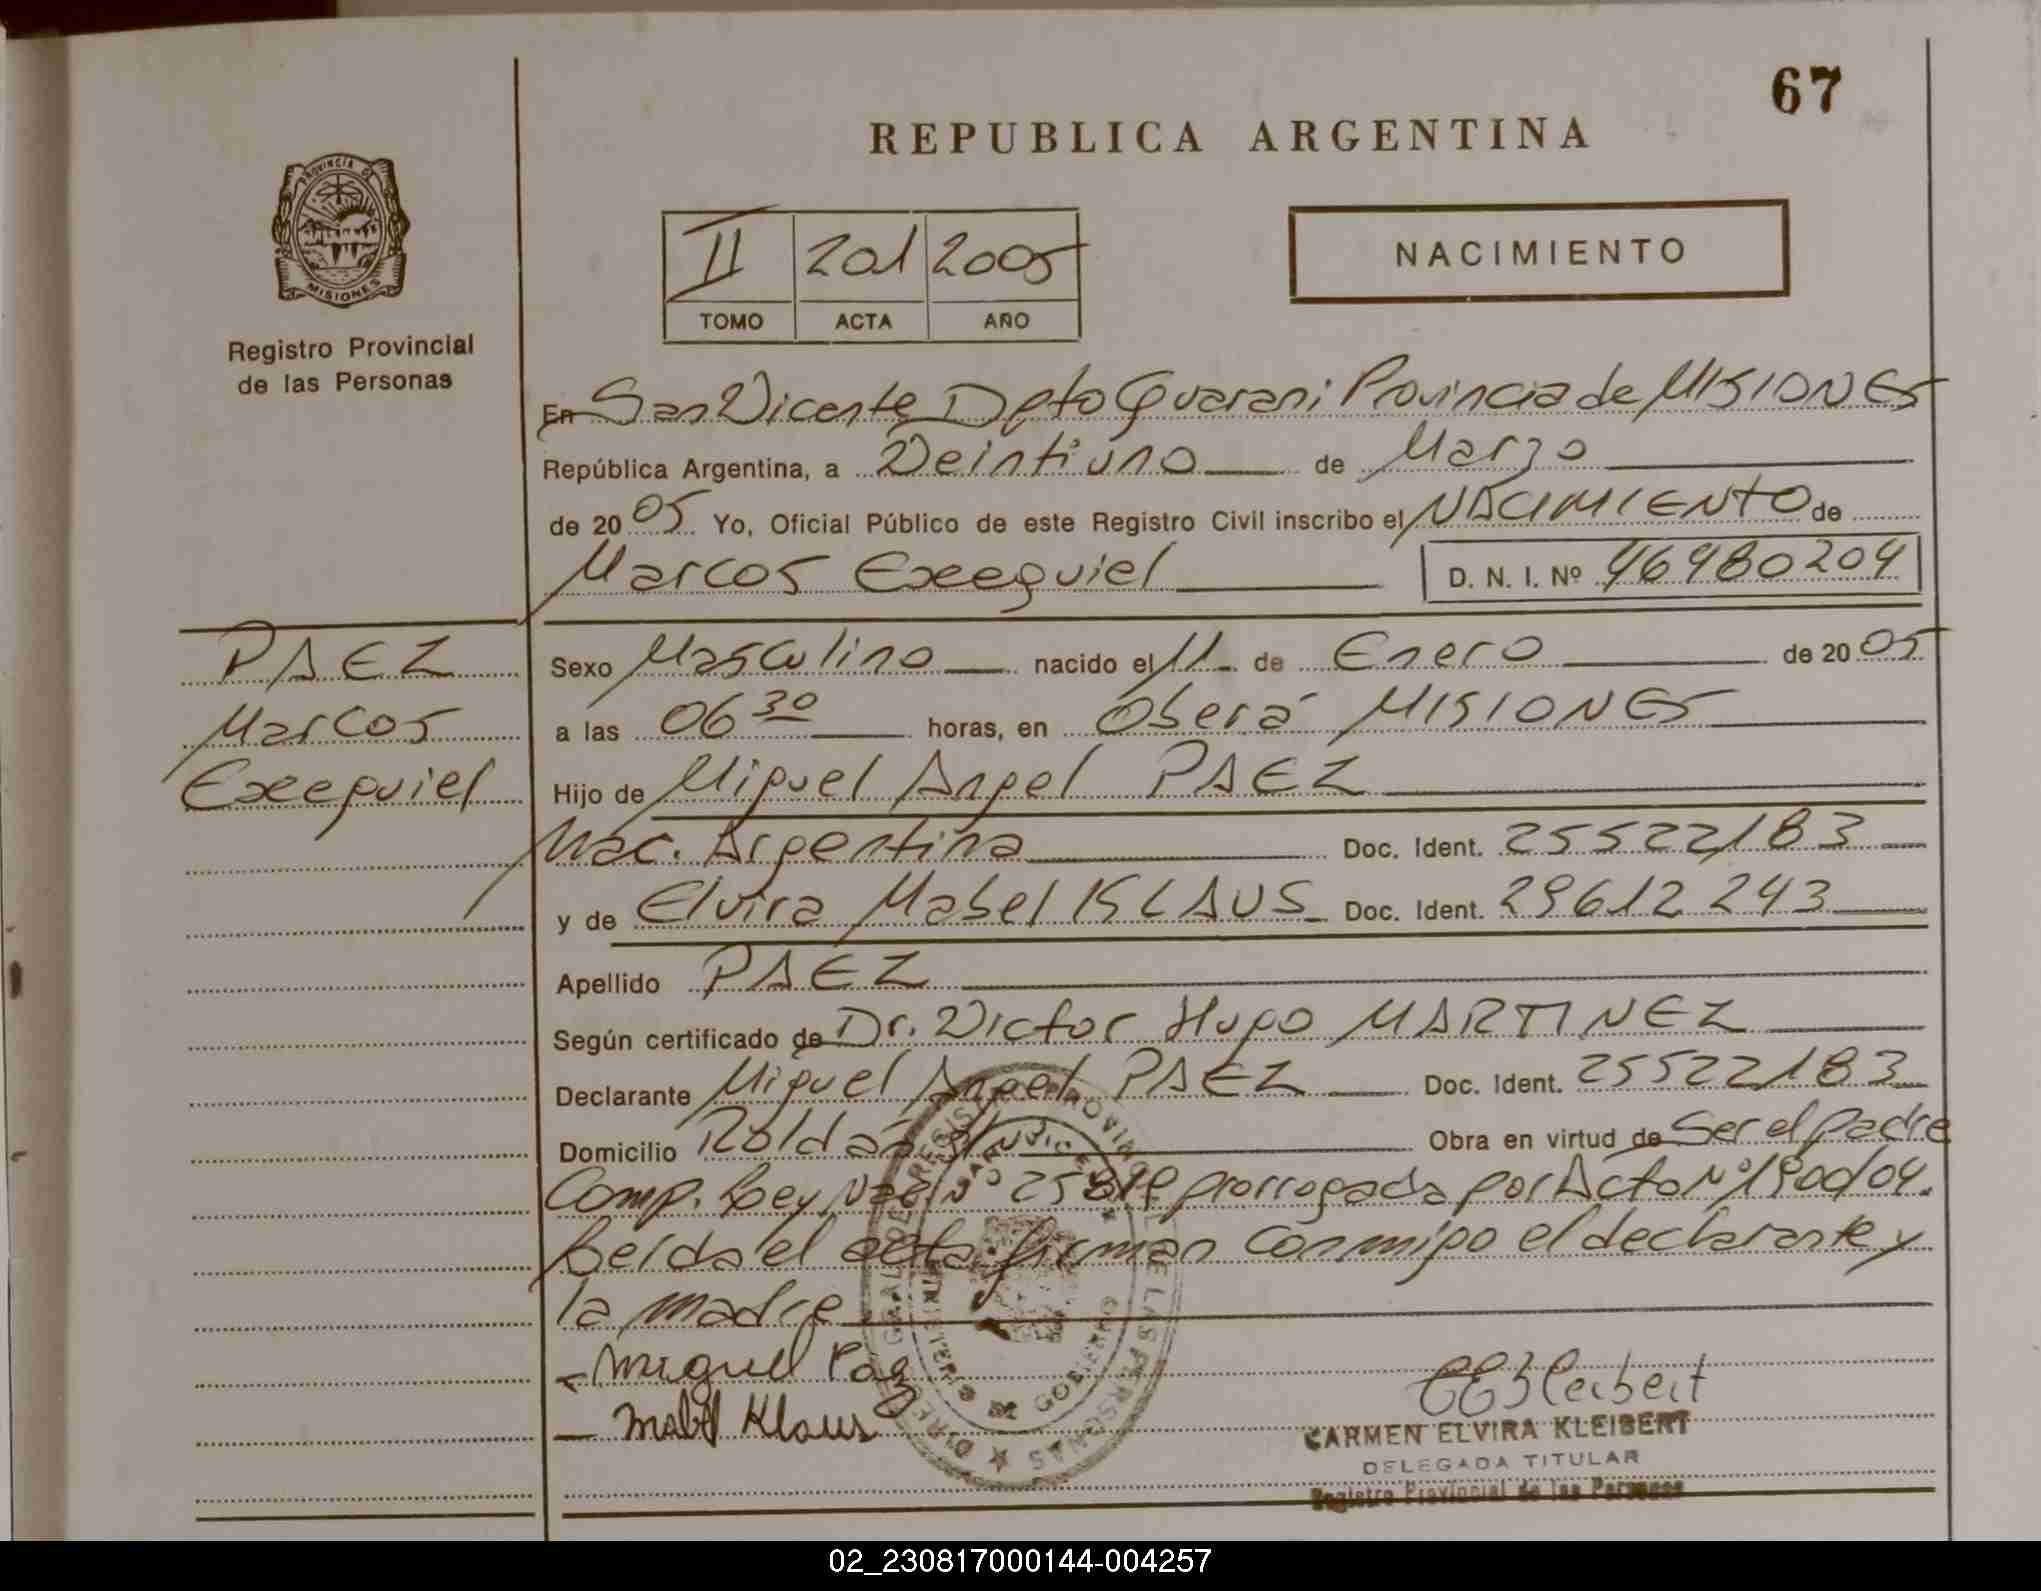 67
REPUBLICA ARGENTINA
PROVINCIA DE
MISIONES
Registro Provincial
de las Personas
II 201 2005
TOMO ACTA AÑO
NACIMIENTO
En San Vicente Dpto Guarani Provincia de MISIONES
República Argentina, a Veintiuno de Marzo
de 2005 Yo, Oficial Público de este Registro Civil inscribo el NACIMIENTO de
Marcos Exequiel D. N. I. Nº 46980204
PAEZ
Marcos
Exequiel
Sexo Masculino nacido el 11 de Enero de 2005
a las 06 30 horas, en Oberá MISIONES
Hijo de Miguel Angel PAEZ
Nac. Argentina Doc. Ident. 25522183
y de Elvira Mabel KLAUS Doc. Ident. 29612243
Apellido PAEZ
Según certificado de Dr. Victor Hugo MARTINEZ
Declarante Miguel Angel PAEZ Doc. Ident. 25522183
Domicilio Roldán Obra en virtud de Ser el padre
Comp. Ley Nac. Nº prorrogada por Acto Nº 1900/04.
Leida el acta firman conmigo el declarante y
la madre
Miguel Paez
Mabel Klaus
CEKleibert
CARMEN ELVIRA KLEIBERT
DELEGADA TITULAR
Registro Provincial de las Personas
02_230817000144-004257